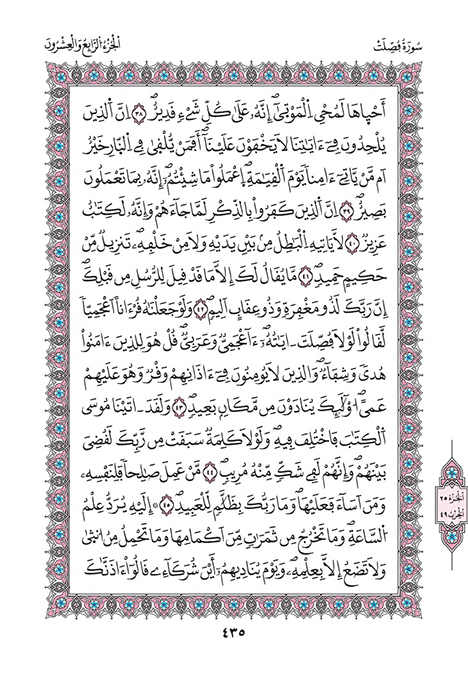 سُورَةُ فُصِّلَتْ
الجُزْءُ الرَّابِعُ وَالْعِشْرُونَ
أَحْيَاهَا لَمُحْيِ اِ۬لْمَوْتَىٰٓۖ إِنَّهُۥ عَلَىٰ كُلِّ شَےْءٖ قَدِيرٌۖ ٣٨ اِنَّ اَ۬لذِينَ
يُلْحِدُونَ فِےٓ ءَايَٰتِنَا لَا يَخْفَوْنَ عَلَيْنَآۖ أَفَمَنْ يُّلْقَىٰ فِے اِ۬لنّ۪ارِ خَيْرٌ
اَم مَّنْ يَّاتِےٓ ءَامِناٗ يَوْمَ اَ۬لْقِيَٰمَةِۖ اِ۪عْمَلُواْ مَا شِئْتُمُۥٓۖ إِنَّهُۥ بِمَا تَعْمَلُونَ
بَصِيرٌۖ ٣٩ اِنَّ اَ۬لذِينَ كَفَرُواْ بِالذِّكْرِ لَمَّا جَآءَهُمْ وَإِنَّهُۥ لَكِتَٰبٌ
عَزِيزٞ ٤٠ لَّا يَاتِيهِ اِ۬لْبَٰطِلُ مِنۢ بَيْنِ يَدَيْهِ وَلَا مِنْ خَلْفِهِۦۖ تَنزِيلٞ مِّنْ
حَكِيمٍ حَمِيدٖۖ ٤١ مَّا يُقَالُ لَكَ إِلَّا مَا قَدْ قِيلَ لِلرُّسُلِ مِن قَبْلِكَۖ
إِنَّ رَبَّكَ لَذُو مَغْفِرَةٖ وَذُو عِقَابٍ اَلِيمٖۖ ٤٢ وَلَوْ جَعَلْنَٰهُ قُرْءَاناً اَعْجَمِيّاٗ
لَّقَالُواْ لَوْلَا فُصِّلَتَ اٰيَٰتُهُۥٓۖ ءَآعْجَمِيّٞ وَعَرَبِيّٞۖ قُلْ هُوَ لِلذِينَ ءَامَنُواْ
هُديٗ وَشِفَآءٞۖ وَالذِينَ لَا يُومِنُونَ فِےٓ ءَاذَانِهِمْ وَقْرٞ وَهُوَ عَلَيْهِمْ
عَمىًۖ ا۟وْلَٰٓئِكَ يُنَادَوْنَ مِن مَّكَانِۢ بَعِيدٖۖ ٤٣ وَلَقَدَ اٰتَيْنَا مُوسَى
اَ۬لْكِتَٰبَ فَاخْتُلِفَ فِيهِۖ وَلَوْلَا كَلِمَةٞ سَبَقَتْ مِن رَّبِّكَ لَقُضِيَ
بَيْنَهُمْۖ وَإِنَّهُمْ لَفِے شَكّٖ مِّنْهُ مُرِيبٖۖ ٤٤ مَّنْ عَمِلَ صَٰلِحاٗ فَلِنَفْسِهِۦۖ
وَمَنَ اَسَآءَ فَعَلَيْهَاۖ وَمَا رَبُّكَ بِظَلَّٰمٖ لِّلْعَبِيدِۖ ٤٥ إِلَيْهِ يُرَدُّ عِلْمُ
اُ۬لسَّاعَةِۖ وَمَا تَخْرُجُ مِن ثَمَرَٰتٖ مِّنَ اَكْمَامِهَا وَمَا تَحْمِلُ مِنُ ا۟نث۪ىٰ
وَلَا تَضَعُ إِلَّا بِعِلْمِهِۦۖ وَيَوْمَ يُنَادِيهِمُۥٓ أَيْنَ شُرَكَآءِے قَالُوٓاْ ءَاذَنَّٰكَ
الْجُزْءُ ٢٥
الْحِزْبُ ٤٩
٤٣٥